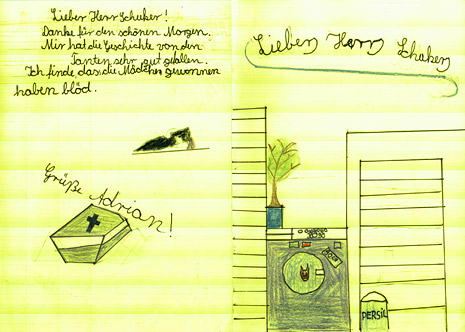 Lieber Herr Schuker!
Danke für den schönen Morgen.
Mir hat die Geschichte von den
Tanten sehr gut gefallen.
Ich finde das, die Mädchen gewonnen
haben blöd.
Grüße Adrian!
Lieben Herrn Schuker
PERSIL